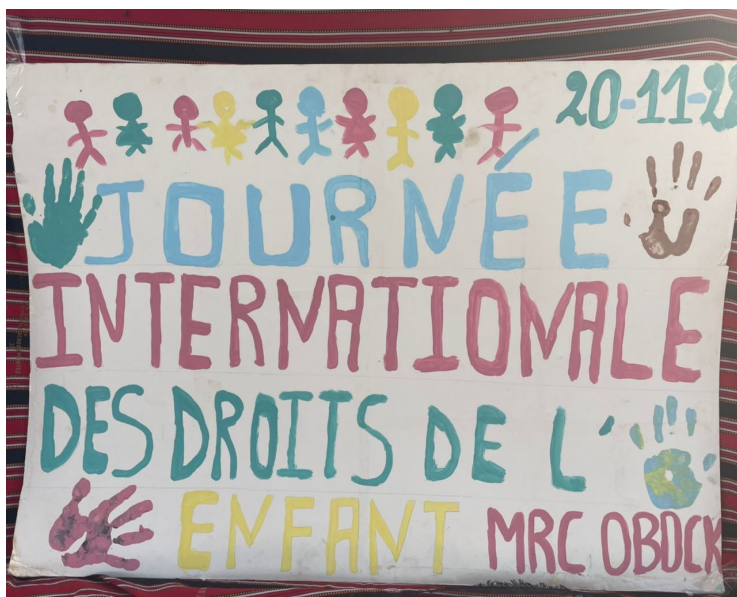 20-11-23
JOURNÉE
INTERNATIONALE
DES DROITS DE L'
ENFANT MRC OBOCK